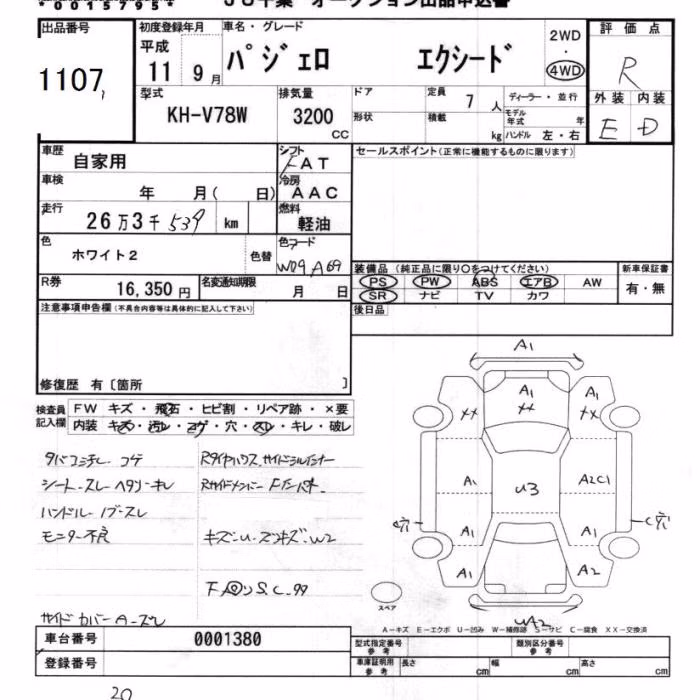 *00157953*
出品番号 初度登録年月 車名・グレード 2WD 評価点
平成
1107 11 9月 パジェロ エクシード ・ 4WD R
型式 排気量 ドア 定員 7人 ディーラー・並行 外装 内装
KH-V78W 3200cc 形状 積載 kg モデル年式 年 E D
ハンドル 左・右
車歴 自家用 シフト FAT セールスポイント(正常に機能するものに限ります)
車検 年 月( 日) 冷房 AAC
走行 26万3千539 km 燃料 軽油
色 ホワイト2 色替 色コード W09 A69
装備品 (純正品に限り○をつけてください) 新車保証書
R券 16,350円 名変通知期限 月 日 PS PW ABS エアB AW 有・無
SR ナビ TV カワ
注意事項申告欄(不具合内容等は具体的に記入して下さい) 後日品
修復歴 有〔箇所 〕
検査員記入欄 FW キズ・飛石・ヒビ割・リペア跡・×要
内装 キズ・汚レ・コゲ・穴・スレ・キレ・破レ
タバコニチレ コゲ
シート-スレ ヘタリ-キレ
ハンドル-ノブ-スレ
モニター不良
サイドカバーA-ズレ
Rタイヤハウス サイドシルインナー
キズ・U・ズンキズ・W2
A1
A1 A1
XX XX XX
A1 U3 A2C1
C穴 A1 A1 C穴
A1 A2
スペア UA2
A-キズ E-エクボ U-凹み W-補修跡 S-サビ C-腐食 XX-交換済
車台番号 0001380 型式指定番号 参考 類別区分番号 参考
登録番号 車庫証明用 参考 長さ cm 幅 cm 高さ cm
20